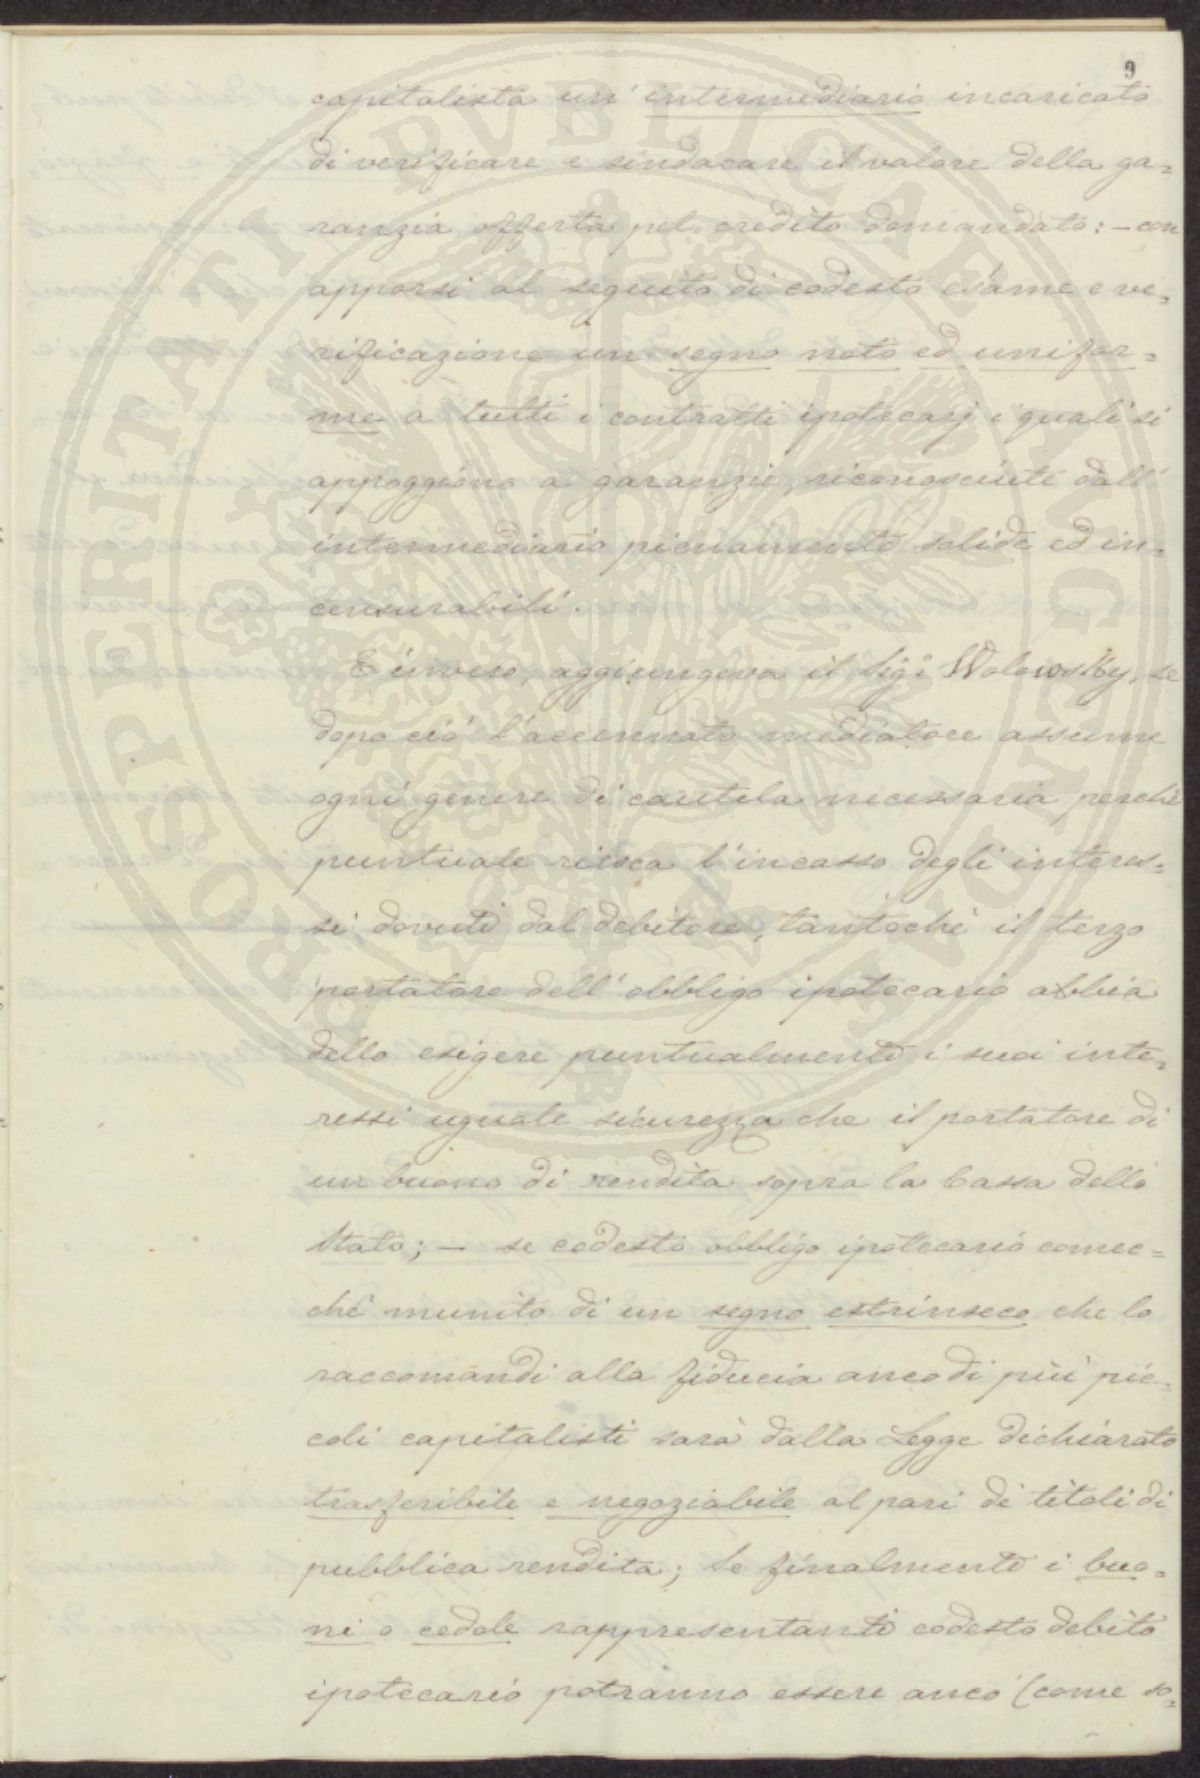 9
capitalista un' intermediario incaricato
di verificare e sindacare il valore della ga=
ranzia offerta pel credito domandato: - con
apporsi al seguito di codesto esame e ve=
rificazione un segno noto ed unifor=
me a tutti i contratti ipotecarj i quali si
appoggiano a garanzie, riconosciute dall'
intermediario pienamente solide ed in=
censurabili.
E invero, aggiungeva il Sig. Wolowsky, se
dopo ciò l'accennato mediatore assume
ogni genere di cautela necessaria perchè
puntuale riesca l'incasso degli interes=
si dovuti dal debitore, tantochè il terzo
portatore dell'obbligo ipotecario abbia
dello esigere puntualmente i suoi inte=
ressi uguale sicurezza che il portatore di
un buono di rendita sopra la Cassa dello
Stato; - se codesto obbligo ipotecario comec=
chè munito di un segno estrinseco che lo
raccomandi alla fiducia anco di più pic=
coli capitalisti sarà dalla Legge dichiarato
trasferibile e negoziabile al pari di titoli di
pubblica rendita; Se finalmente i buo=
ni o cedole rappresentanti codesto debito
ipotecario potranno essere anco (come so=
PROSPERITATI PVBLICAE AVGENDAE